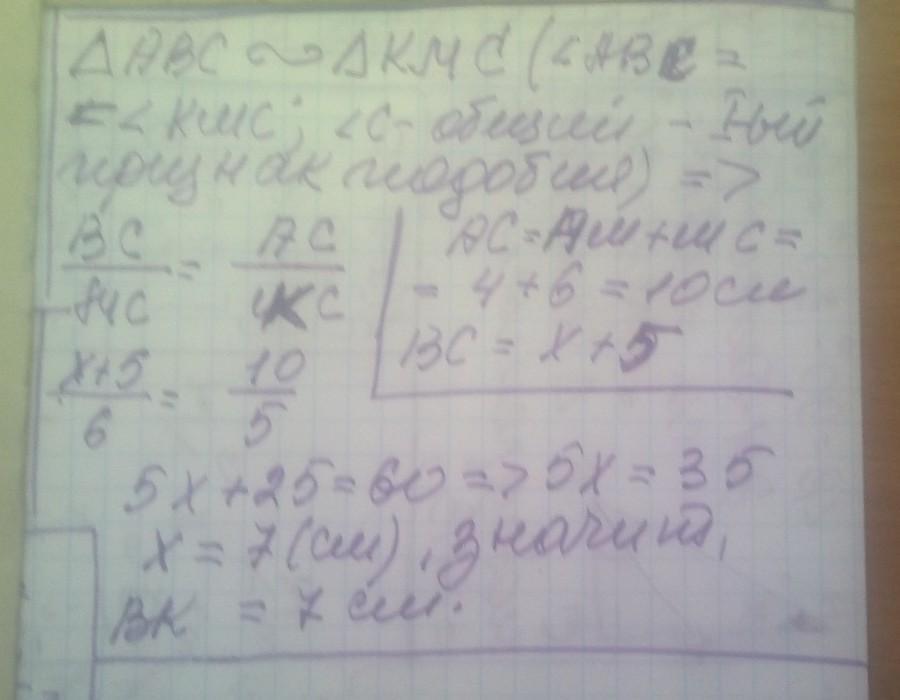 △ABC ∾ △KMC (∠ABC =
= ∠KMC; ∠C - общий - Iый
признак подобия) =>
BC/MC = AC/KC
AC = AM + MC =
= 4 + 6 = 10 см
BC = x + 5
x+5/6 = 10/5
5x + 25 = 60 => 5x = 35
x = 7 (см), значит,
BK = 7 см.